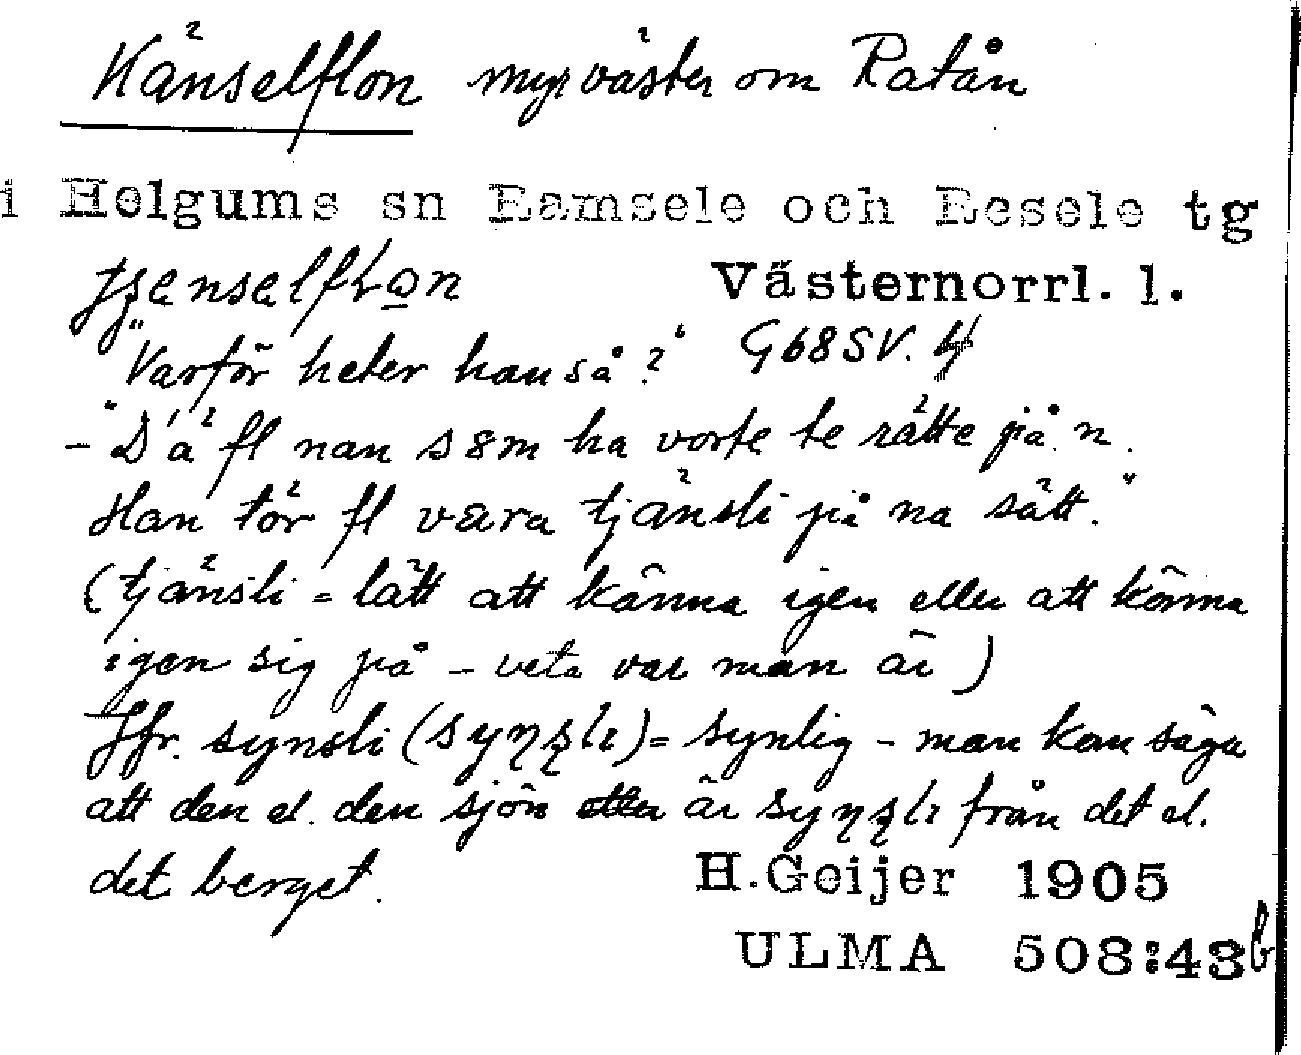 Känselflon myr väster om Ratån
i Helgums sn Ramsele och Resele tg
Västernorrl. l.
"Varför heter han så?" G68SV. 4
- "Dä' fl nan s8m ha vorte te rätte på'n.
Han tör fl vara tjänsli på na sätt."
(tjänsli = lätt att känna igen eller att känna
igen sig på - veta var man är)
Jfr. synsli ( )= synlig - man kan säga
att den el. den sjön är från det el.
det berget. H.Geijer 1905
ULMA 508:43b